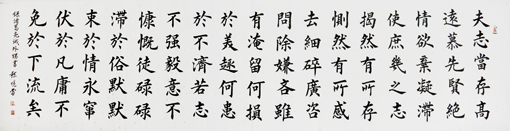 夫志當存高
遠慕先賢絕
情欲棄凝滯
使庶幾之志
揭然有所存
惻然有所感
去細碎廣咨
問除嫌吝雖
有淹留何損
於美趣何患
於不濟若志
不强毅意不
慷慨徒碌碌
滯於俗默默
束於情永竄
伏於凡庸不
免於下流矣
諸葛亮誡外甥書